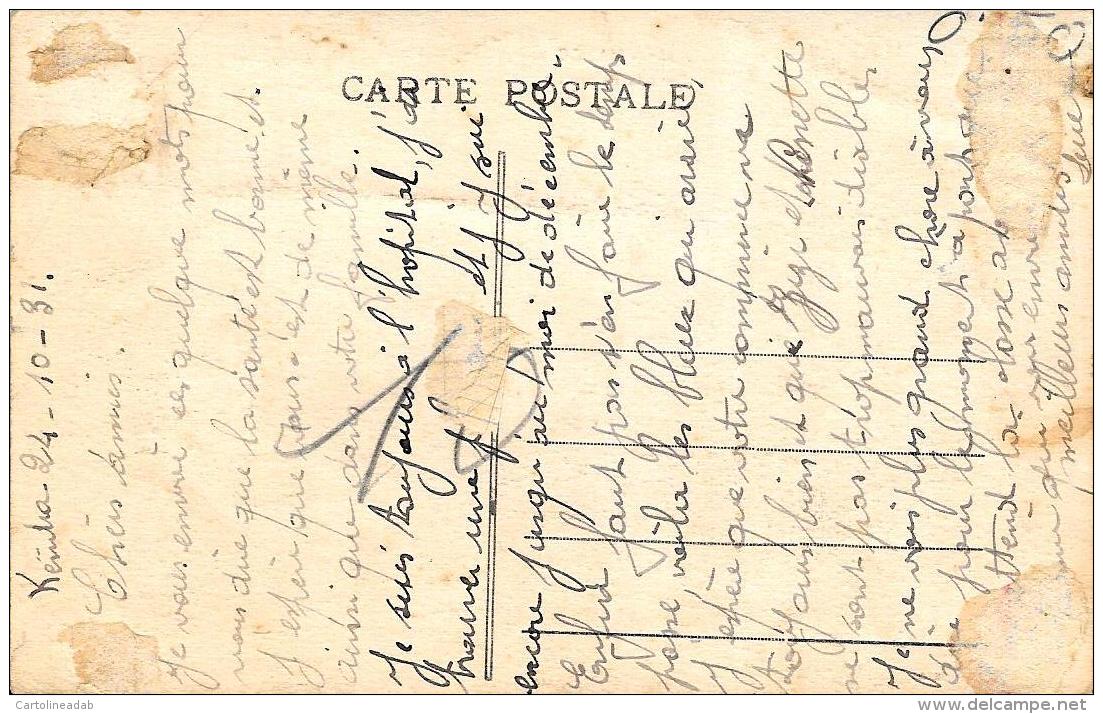 CARTE POSTALE
Kenitra 24-10-31.
Chers amis.
Je vous envoi ces quelque mots pour
vous dire que la santé est bonne et.
J'espère que vous s'est de même
ainsi que dans votre famille.
Je suis toujours à l'hopital, j'a
et j'y sui
encore jusqu'au moi de décembre.
Enfin faut pas s'en faire le temps
passe voila les bleus qui arrive
J'espère que votre commerce va
toujours bien et que Gigi et Nénette
ne sont pas trop mauvais diables
Je ne vois plus grand chose à vous
dire pour le moment à part que
René la classe a
meilleurs amitiés
© Cartolineadab
delcampe.net